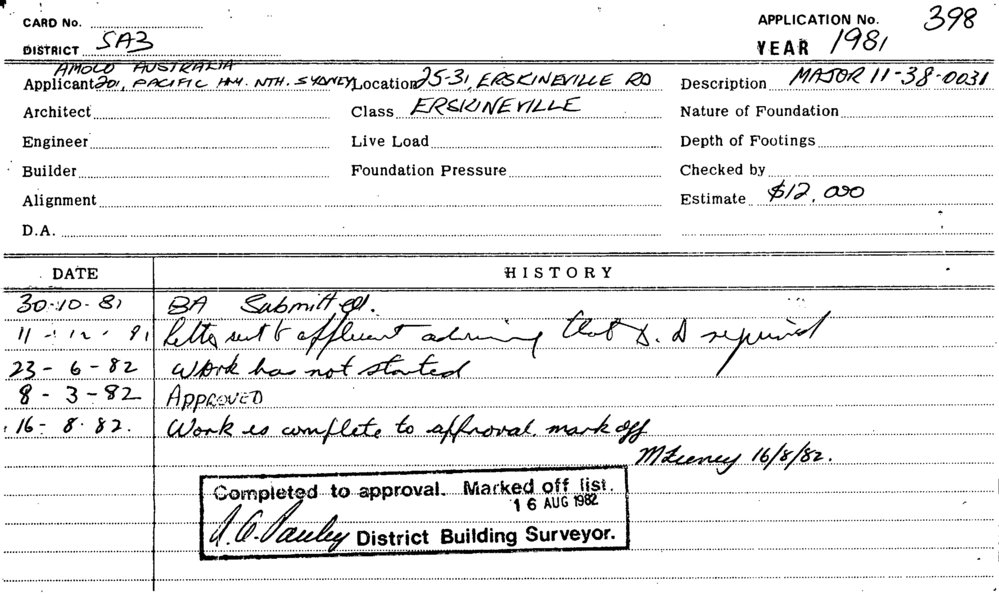 CARD No.
APPLICATION No. 398
DISTRICT SA3
YEAR 1981
AMOCO AUSTRALIA
Applicant 201, PACIFIC HWY. NTH. SYDNEY Location 25-31, ERSKINEVILLE RD Description MAJOR 11-38-0031
Architect Class ERSKINEVILLE Nature of Foundation
Engineer Live Load Depth of Footings
Builder Foundation Pressure Checked by
Alignment Estimate $12,000
D.A.
DATE HISTORY
30-10-81 BA Submitted.
11-12-81 letter sent to applicant advising that D.A required
23-6-82 Work has not started
8-3-82 APPROVED
16-8-82. Work is complete to approval. mark off
16/8/82.
Completed to approval. Marked off list.
16 AUG 1982
District Building Surveyor.